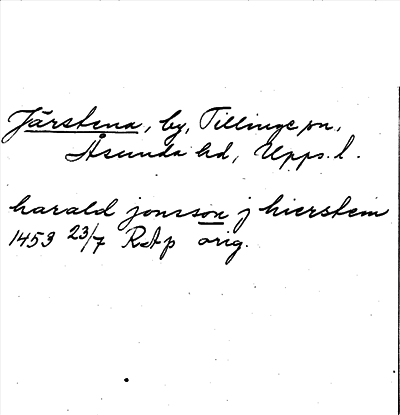 Järstena, by, Tillinge sn,
Åsunda hd, Upps. l.
harald jonsson j hierstem
1453 23/7 RAp orig.